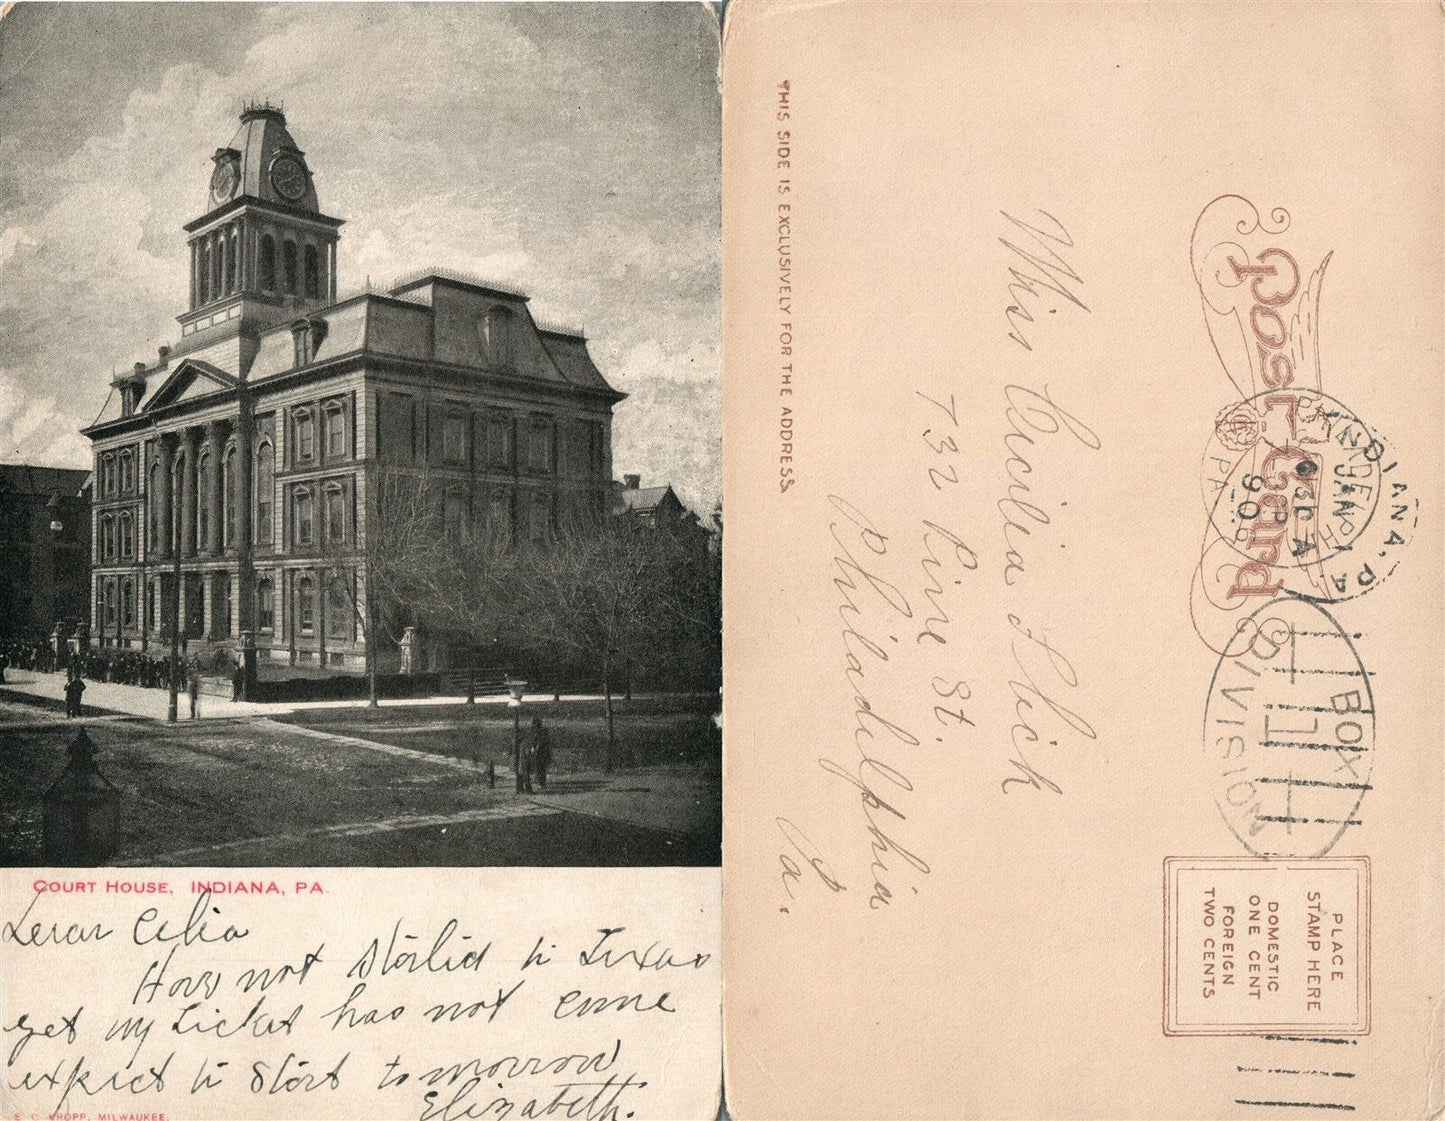 COURT HOUSE, INDIANA, PA.
Dear Celia
Have not started to Texas
yet my ticket has not come
expect to start tomorrow
Elizabeth.
E. C. KROPP, MILWAUKEE.
THIS SIDE IS EXCLUSIVELY FOR THE ADDRESS.
Post Card
Miss Cecilia Slick
732 Pine St.
Philadelphia
Pa.
INDIANA, PA.
JAN
BOX
DIVISION
PLACE
STAMP HERE
DOMESTIC
ONE CENT
FOREIGN
TWO CENTS